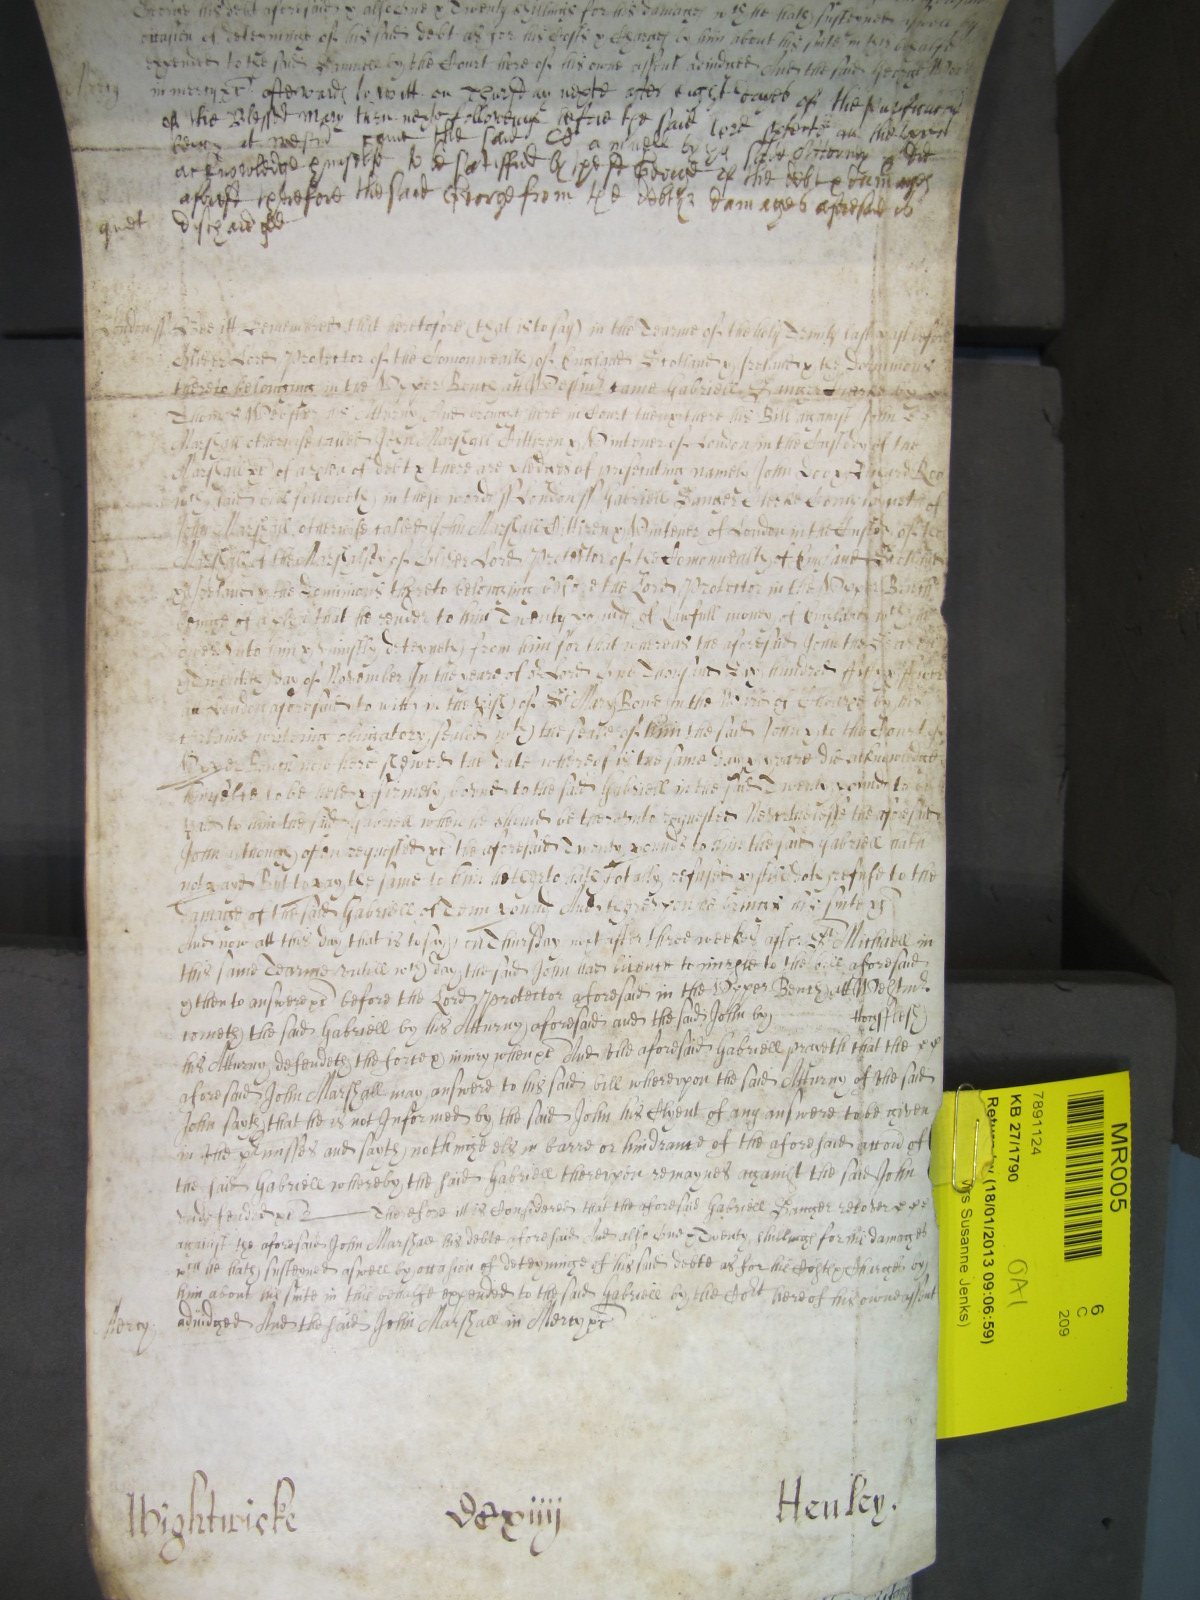 George his debt aforesaid & alsoe one & Twenty shillings for his damages wch he hath susteyned aswell by
occasion of deteyninge of his said debt as for his Costs & Charges by him about his suite in this behalfe
expended to the said Samuell by the Court here of his owne assent adiudged And the said George Wood
Mercy in mercy &c afterwards to witt on Thursday nexte after eight dayes of the purificacon
of the Blessed Mary then nexte followeing before the said lord protector in the upper
bench at Westm came the said Samuell by his said Attorney And
acknowledge himselfe to be satisfied by the sd George of the debt & damages
aforesd therefore the said George from the debt & damages aforesaid is
quiet discharged
London ss Bee itt Remembred that heretofore (that is to say) in the Tearme of the holy Trinity last past before
Oliver Lord Protector of the Comonwealth of England Scotland & Ireland & the Dominions
thereto belonging in the Upper Bench att Westm came Gabriell Sanger Clerke by
Thomas Webster his Atturny And brought here in Court then & there his Bill against John
Marshall otherwise called John Marshall Cittizen & Vintener of London in the Custody of the
Marshall &c of a plea of debt & there are pledges of prosecuting namely John Doo & Richard Roo
wch said bill followeth in these words ss London ss Gabriell Sanger Clerke Complayneth of
John Marshall otherwise called John Marshall Cittizen & Vintener of London in the Custody of the
Marshall of the Marshalsey of Oliver Lord Protector of the Comonwealth of England Scotland
& Ireland & the Dominions thereto belonging before the Lord Protector in the Upper Bench
being of a plea that he render to him Twenty pounds of Lawfull money of England wch he
oweth unto him & uniustly deteyneth from him for that whereas the aforesaid John the
Twentith day of November In the yeare of or Lord One Thousand Six hundred fifty & ffive
in London aforesaid to witt in the Pish of St Mary Bowe in the Ward of Cheape by his
certaine writing obligatory sealed wth the seale of him the said John & to the Court of
Upper Bench now here shewed the date whereof is the same day & yeare did acknowledge
himselfe to be held & firmely bound to the said Gabriell in the said Twenty pounds to be
paid to him the said Gabriell when he should be thereunto requested Neverthelesse the aforesaid
John although often requested &c the aforesaid Twenty pounds to him the said Gabriell hath
not payd But to pay the same to him hitherto hath totally refused & still doth refuse to the
damage of the said Gabriell of Tenn pounds And thereupon he brings his suite &c
And now att this day that is to say on Thursday next after three weekes after St Michaell in
this same Tearme untill wch day the said John had licence to imparle to the bill aforesaid
& then to answere &c before the Lord Protector aforesaid in the Upper Bench att Westmr
cometh the said Gabriell by his Atturny aforesaid and the said John by Hogsflesh
his Atturny defendeth the force & iniury when &c And the aforesaid Gabriell prayeth that the
aforesaid John Marshall may answere to his said bill whereupon the said Atturny of the said
John sayth that he is not Informed by the said John his Clyent of any answere to be given
in the pmisses and sayth nothinge els in barre or hindrance of the aforesaid accon of
the said Gabriell whereby the said Gabriell thereupon remaynes against the said John
undefended &c Therefore itt is Considered that the aforesaid Gabriell Sanger recover
against the aforesaid John Marshall his debte aforesaid And also One & Twenty shillings for his damages
wch he hath susteyned aswell by occasion of deteyninge of his said debte as for his Costs & Charges by
him about his suite in this behalfe expended to the said Gabriell by the Cort here of his owne assent
Mercy adiudged And the said John Marshall in Mercy &c
Wightwicke Dcxiiij Henley.
MR005
6
C
209
7891124
KB 27/1790
OA1
Return by (18/01/2013 09:06:59)
Susanne Jenks)